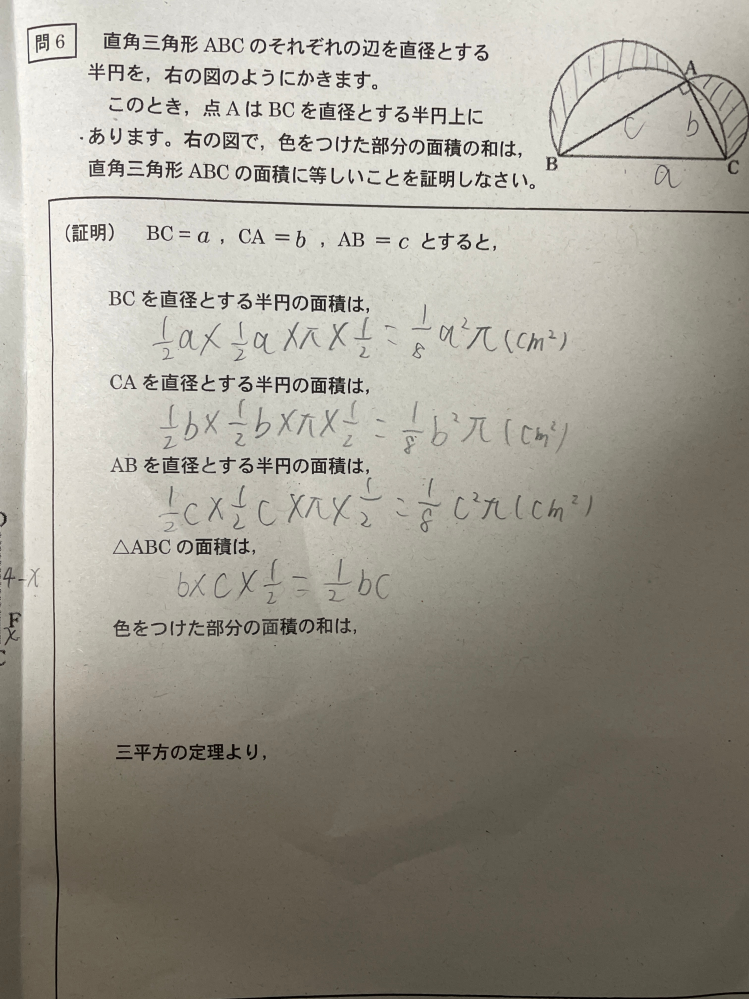 問6 直角三角形 ABC のそれぞれの辺を直径とする
半円を，右の図のようにかきます。
このとき，点 A は BC を直径とする半円上に
あります。右の図で，色をつけた部分の面積の和は，
直角三角形 ABC の面積に等しいことを証明しなさい。
A
c
b
B
C
a
（証明） BC = a ，CA = b ，AB = c とすると，
BC を直径とする半円の面積は，
1/2 a × 1/2 a × π × 1/2 = 1/8 a²π (cm²)
CA を直径とする半円の面積は，
1/2 b × 1/2 b × π × 1/2 = 1/8 b²π (cm²)
AB を直径とする半円の面積は，
1/2 c × 1/2 c × π × 1/2 = 1/8 c²π (cm²)
△ABC の面積は，
b × c × 1/2 = 1/2 bc
色をつけた部分の面積の和は，
三平方の定理より，
4-x
F
x